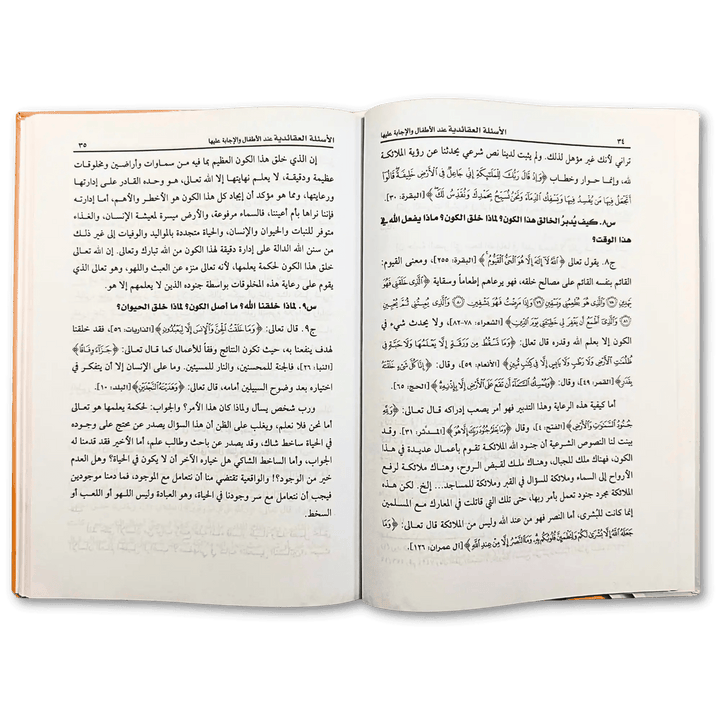 ٣٤
الأسئلة العقائدية عند الأطفال والإجابة عليها
تراني لأنك غير مؤهل لذلك. ولم يثبت لدينا نص شرعي يحدثنا عن رؤية الملائكة
لله، وإنما حوار وخطاب ﴿وَإِذْ قَالَ رَبُّكَ لِلْمَلَٰٓئِكَةِ إِنِّي جَاعِلٌ فِي ٱلْأَرْضِ خَلِيفَةً قَالُوٓا۟
أَتَجْعَلُ فِيهَا مَن يُفْسِدُ فِيهَا وَيَسْفِكُ ٱلدِّمَآءَ وَنَحْنُ نُسَبِّحُ بِحَمْدِكَ وَنُقَدِّسُ لَكَ﴾ [البقرة: ٣٠].
س٨. كيف يُدبرُ الخالق هذا الكون؟ لماذا خلق الكون؟ ماذا يفعل الله في
هذا الوقت؟
ج٨. يقول تعالى ﴿ٱللَّهُ لَآ إِلَٰهَ إِلَّا هُوَ ٱلْحَىُّ ٱلْقَيُّومُ﴾ [البقرة: ٢٥٥]، ومعنى القيوم:
القائم بنفسه القائم على مصالح خلقه، فهو يرعاهم إطعاماً وسقاية ﴿ٱلَّذِي خَلَقَنِي فَهُوَ
يَهْدِينِ ﴿٧٨﴾ وَٱلَّذِي هُوَ يُطْعِمُنِي وَيَسْقِينِ ﴿٧٩﴾ وَإِذَا مَرِضْتُ فَهُوَ يَشْفِينِ ﴿٨٠﴾ وَٱلَّذِي يُمِيتُنِي ثُمَّ يُحْيِينِ
﴿٨١﴾ وَٱلَّذِىٓ أَطْمَعُ أَن يَغْفِرَ لِي خَطِيٓـَٔتِي يَوْمَ ٱلدِّينِ﴾ [الشعراء: ٧٨-٨٢]، ولا يحدث شيء في
الكون إلا بعلم الله وقدره قال تعالى: ﴿وَمَا تَسْقُطُ مِن وَرَقَةٍ إِلَّا يَعْلَمُهَا وَلَا حَبَّةٍ فِي
ظُلُمَٰتِ ٱلْأَرْضِ وَلَا رَطْبٍ وَلَا يَابِسٍ إِلَّا فِي كِتَٰبٍ مُّبِينٍ﴾ [الأنعام: ٥٩]، وقال: ﴿إِنَّا كُلَّ شَىْءٍ خَلَقْنَٰهُ
بِقَدَرٍ﴾ [القمر: ٤٩]، وقال: ﴿وَيُمْسِكُ ٱلسَّمَآءَ أَن تَقَعَ عَلَى ٱلْأَرْضِ إِلَّا بِإِذْنِهِ﴾ [الحج: ٦٥].
أما كيفية هذه الرعاية وهذا التدبير فهو أمر يصعب إدراكه قال تعالى: ﴿وَلِلَّهِ
جُنُودُ ٱلسَّمَٰوَٰتِ وَٱلْأَرْضِ﴾ [الفتح: ٤]، وقال: ﴿وَمَا يَعْلَمُ جُنُودَ رَبِّكَ إِلَّا هُوَ﴾ [المدثر: ٣١]. وقد
بينت لنا النصوص الشرعية أن جنود الله الملائكة تقوم بأعمال عديدة في
هذا الكون، فهناك ملك للجبال، وهناك ملك لقبض الروح، وهناك ملائكة لرفع
الأرواح إلى السماء وملائكة للسؤال في القبر وملائكة للمساجد... إلخ. لكن هذه
الملائكة مجرد جنود تعمل بأمر ربها، حتى تلك التي قاتلت في المعارك مع المسلمين
إنما كانت للبُشرى، أما النصر فهو من عند الله وليس من الملائكة قال تعالى: ﴿وَمَا
جَعَلَهُ ٱللَّهُ إِلَّا بُشْرَىٰ لَكُمْ وَلِتَطْمَئِنَّ قُلُوبُكُم بِهِۦ وَمَا ٱلنَّصْرُ إِلَّا مِنْ عِندِ ٱللَّهِ﴾ [آل عمران: ١٢٦].
الأسئلة العقائدية عند الأطفال والإجابة عليها
٣٥
إن الذي خلق هذا الكون العظيم بما فيه من سماوات وأراضين ومخلوقات
عظيمة ودقيقة، لا يعلم نهايتها إلا الله تعالى، هو وحده القادر على إدارتها
ورعايتها، ومما هو مؤكد أن إيجاد كل هذا الكون هو الأخطر والأهم، أما إدارته
فإننا نراها بأم أعيننا، فالسماء مرفوعة، والأرض ميسرة لمعيشة الإنسان، والغذاء
متوفر للنبات والحيوان والإنسان، والحياة متجددة بالمواليد والوفيات إلى غير ذلك
من سنن الله الدالة على إدارة دقيقة لهذا الكون من الله تبارك وتعالى. إن الله تعالى
خلق هذا الكون لحكمة يعلمها، لأنه تعالى منزه عن العبث واللهو، وهو تعالى الذي
يقوم على رعاية هذه المخلوقات بواسطة جنوده الذين لا يعلمهم إلا هو.
س٩. لماذا خلقنا الله؟ ما أصل الكون؟ لماذا خلق الحيوان؟
ج٩. قال تعالى: ﴿وَمَا خَلَقْتُ ٱلْجِنَّ وَٱلْإِنسَ إِلَّا لِيَعْبُدُونِ﴾ [الذاريات: ٥٦]، فقد خلقنا
لهدف ينفعنا به، حيث تكون النتائج وفقاً للأعمال كما قال تعالى: ﴿جَزَآءً وِفَاقًا﴾
[النبأ: ٢٦]، فالجنة للمحسنين، والنار للمسيئين. وما على الإنسان إلا أن يتفكر في
اختياره بعد وضوح السبيلين أمامه، قال تعالى: ﴿وَهَدَيْنَٰهُ ٱلنَّجْدَيْنِ﴾ [البلد: ١٠].
ورب شخص يسأل ولماذا كان هذا الأمر؟ والجواب: لحكمة يعلمها هو تعالى
أما نحن فلا نعلم، ويغلب على الظن أن هذا السؤال يصدر عن محتج على وجوده
في الحياة ساخط شاك، وقد يصدر عن باحث وطالب علم، أما الأخير فقد قدمنا له
الجواب، وأما الساخط الشاكي هل خياره الآخر أن لا يكون في الحياة؟ وهل العدم
خير من الوجود؟! والواقعية تقتضي منا أن نتعامل مع الموجود، فما دمنا موجودين
فيجب أن نتعامل مع سر وجودنا في الحياة، وهو العبادة وليس اللهو أو اللعب أو
السخط.